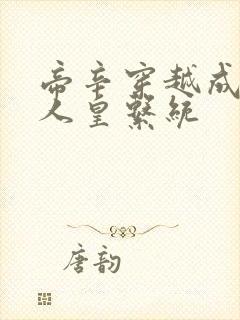 帝辛穿越成
人皇繫統
唐韵